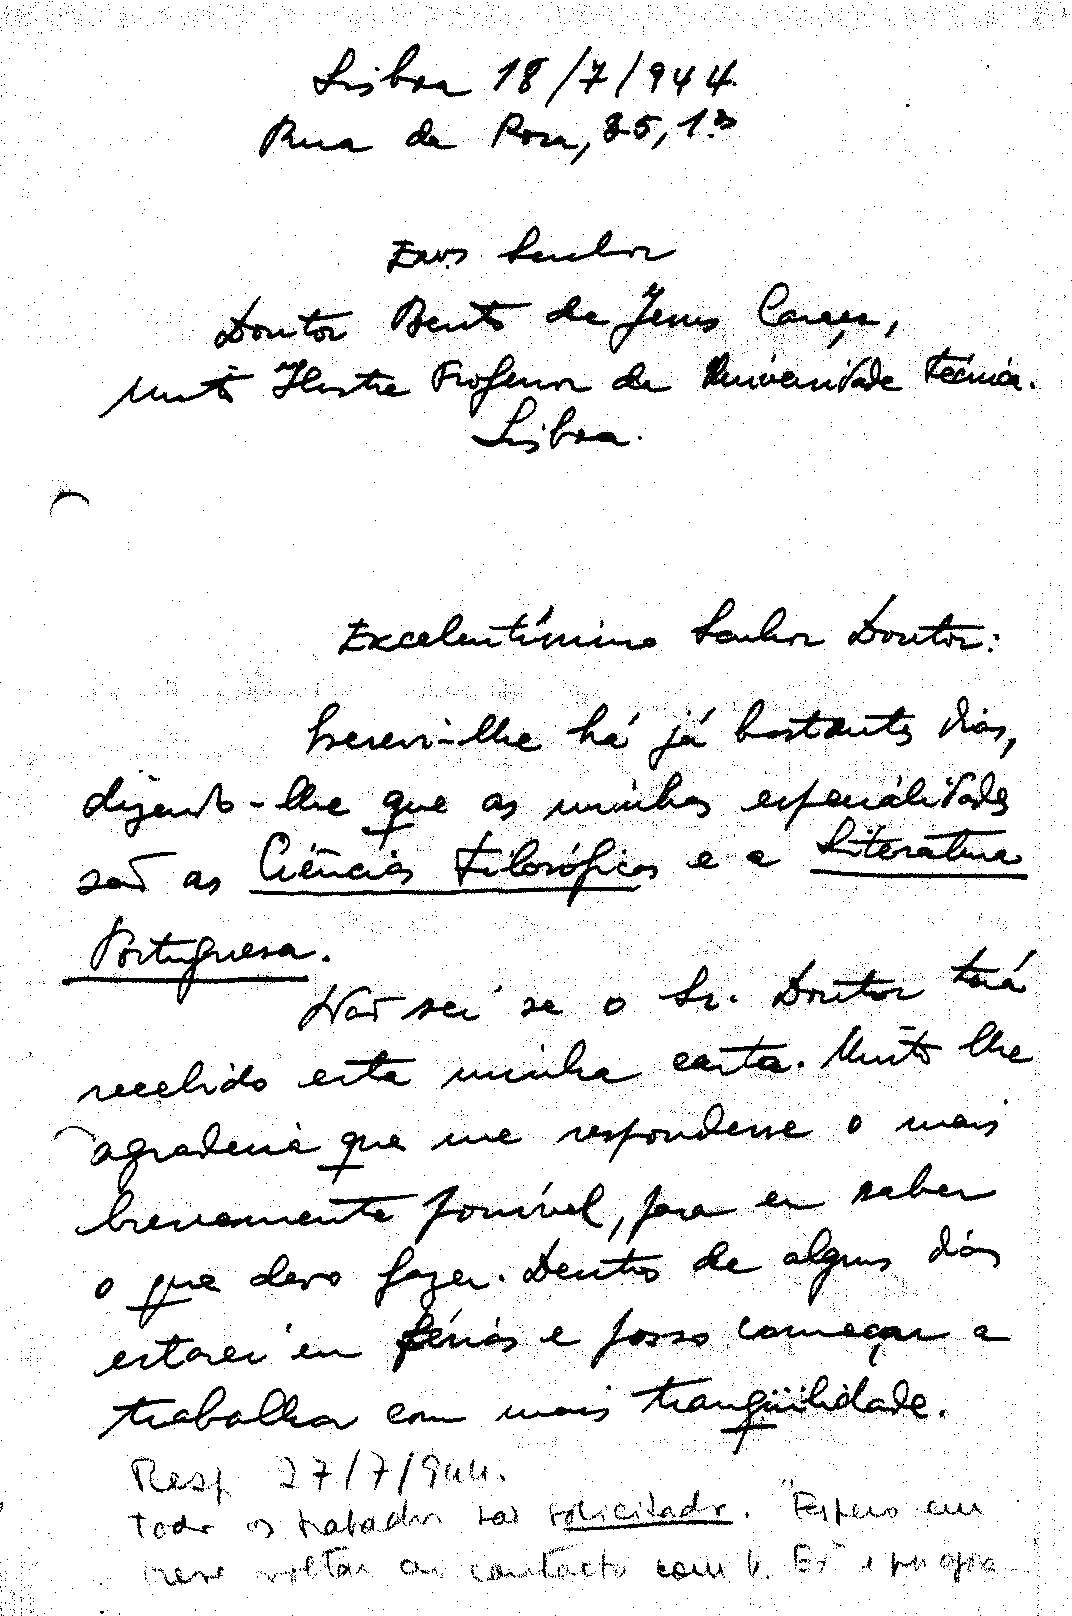 Lisboa 18/7/944.
Rua da Rosa, 35, 1.º
Exmº Senhor
Doutor Bento de Jesus Caraça,
Muito Ilustre Professor da Universidade Técnica.
Lisboa.
Excelentíssimo Senhor Doutor:
Escrevi-lhe há já bastantes dias,
dizendo-lhe que as minhas especialidades
são as Ciências Filosóficas e a Literatura
Portuguesa.
Não sei se o Sr. Doutor terá
recebido esta minha carta. Muito lhe
agradecia que me respondesse o mais
brevemente possível, para eu saber
o que devo fazer. Dentro de alguns dias
estarei em férias e posso começar a
trabalhar com mais tranqüilidade.
Resp. 27/7/944.
Todos os trabalhos são solicitados. "Espero em
breve voltar ao contacto com V. Exª e